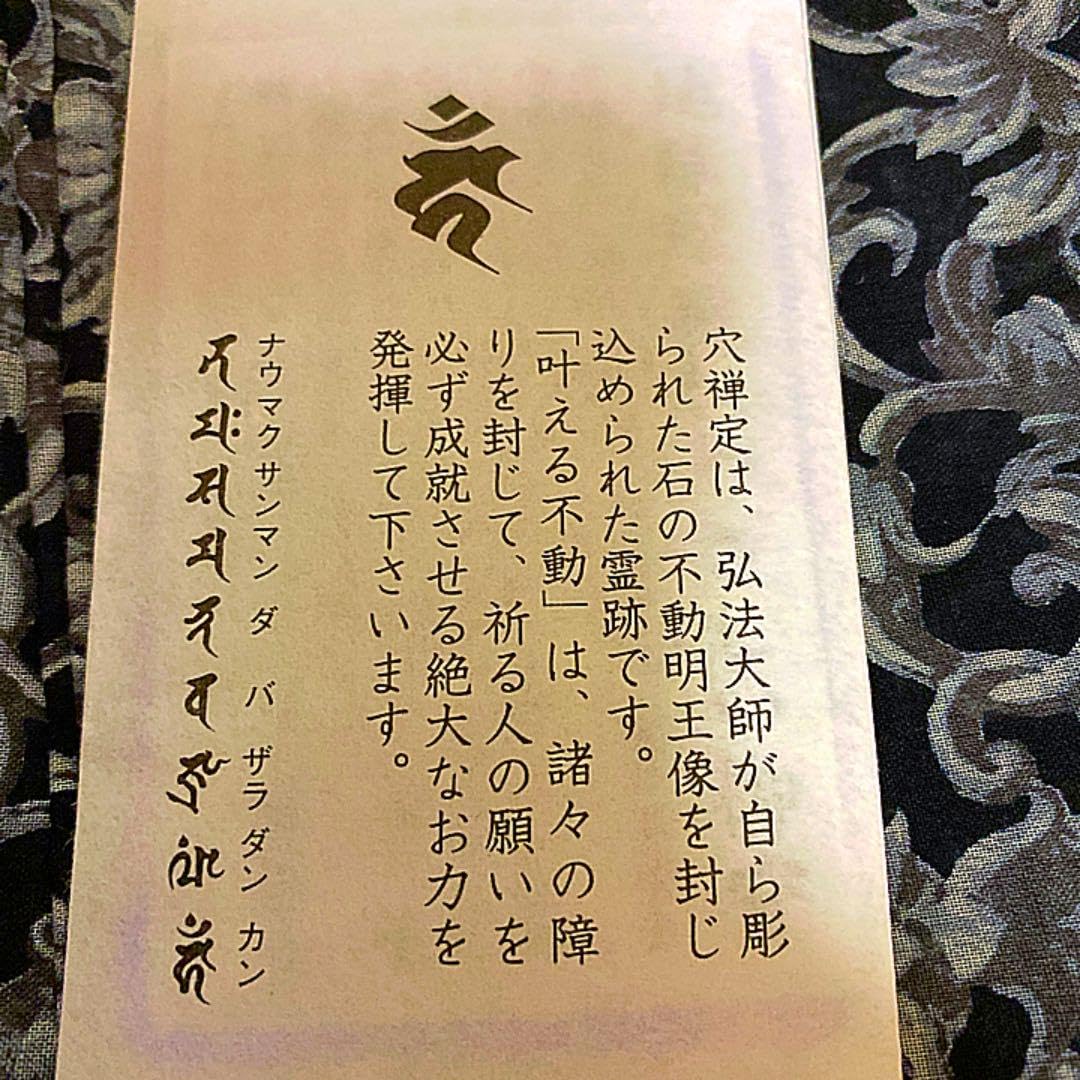 穴禅定は、弘法大師が自ら彫
られた石の不動明王像を封じ
込められた霊跡です。
「叶える不動」は、諸々の障
りを封じて、祈る人の願いを
必ず成就させる絶大なお力を
発揮して下さいます。
ナウマクサンマンダバザラダンカン